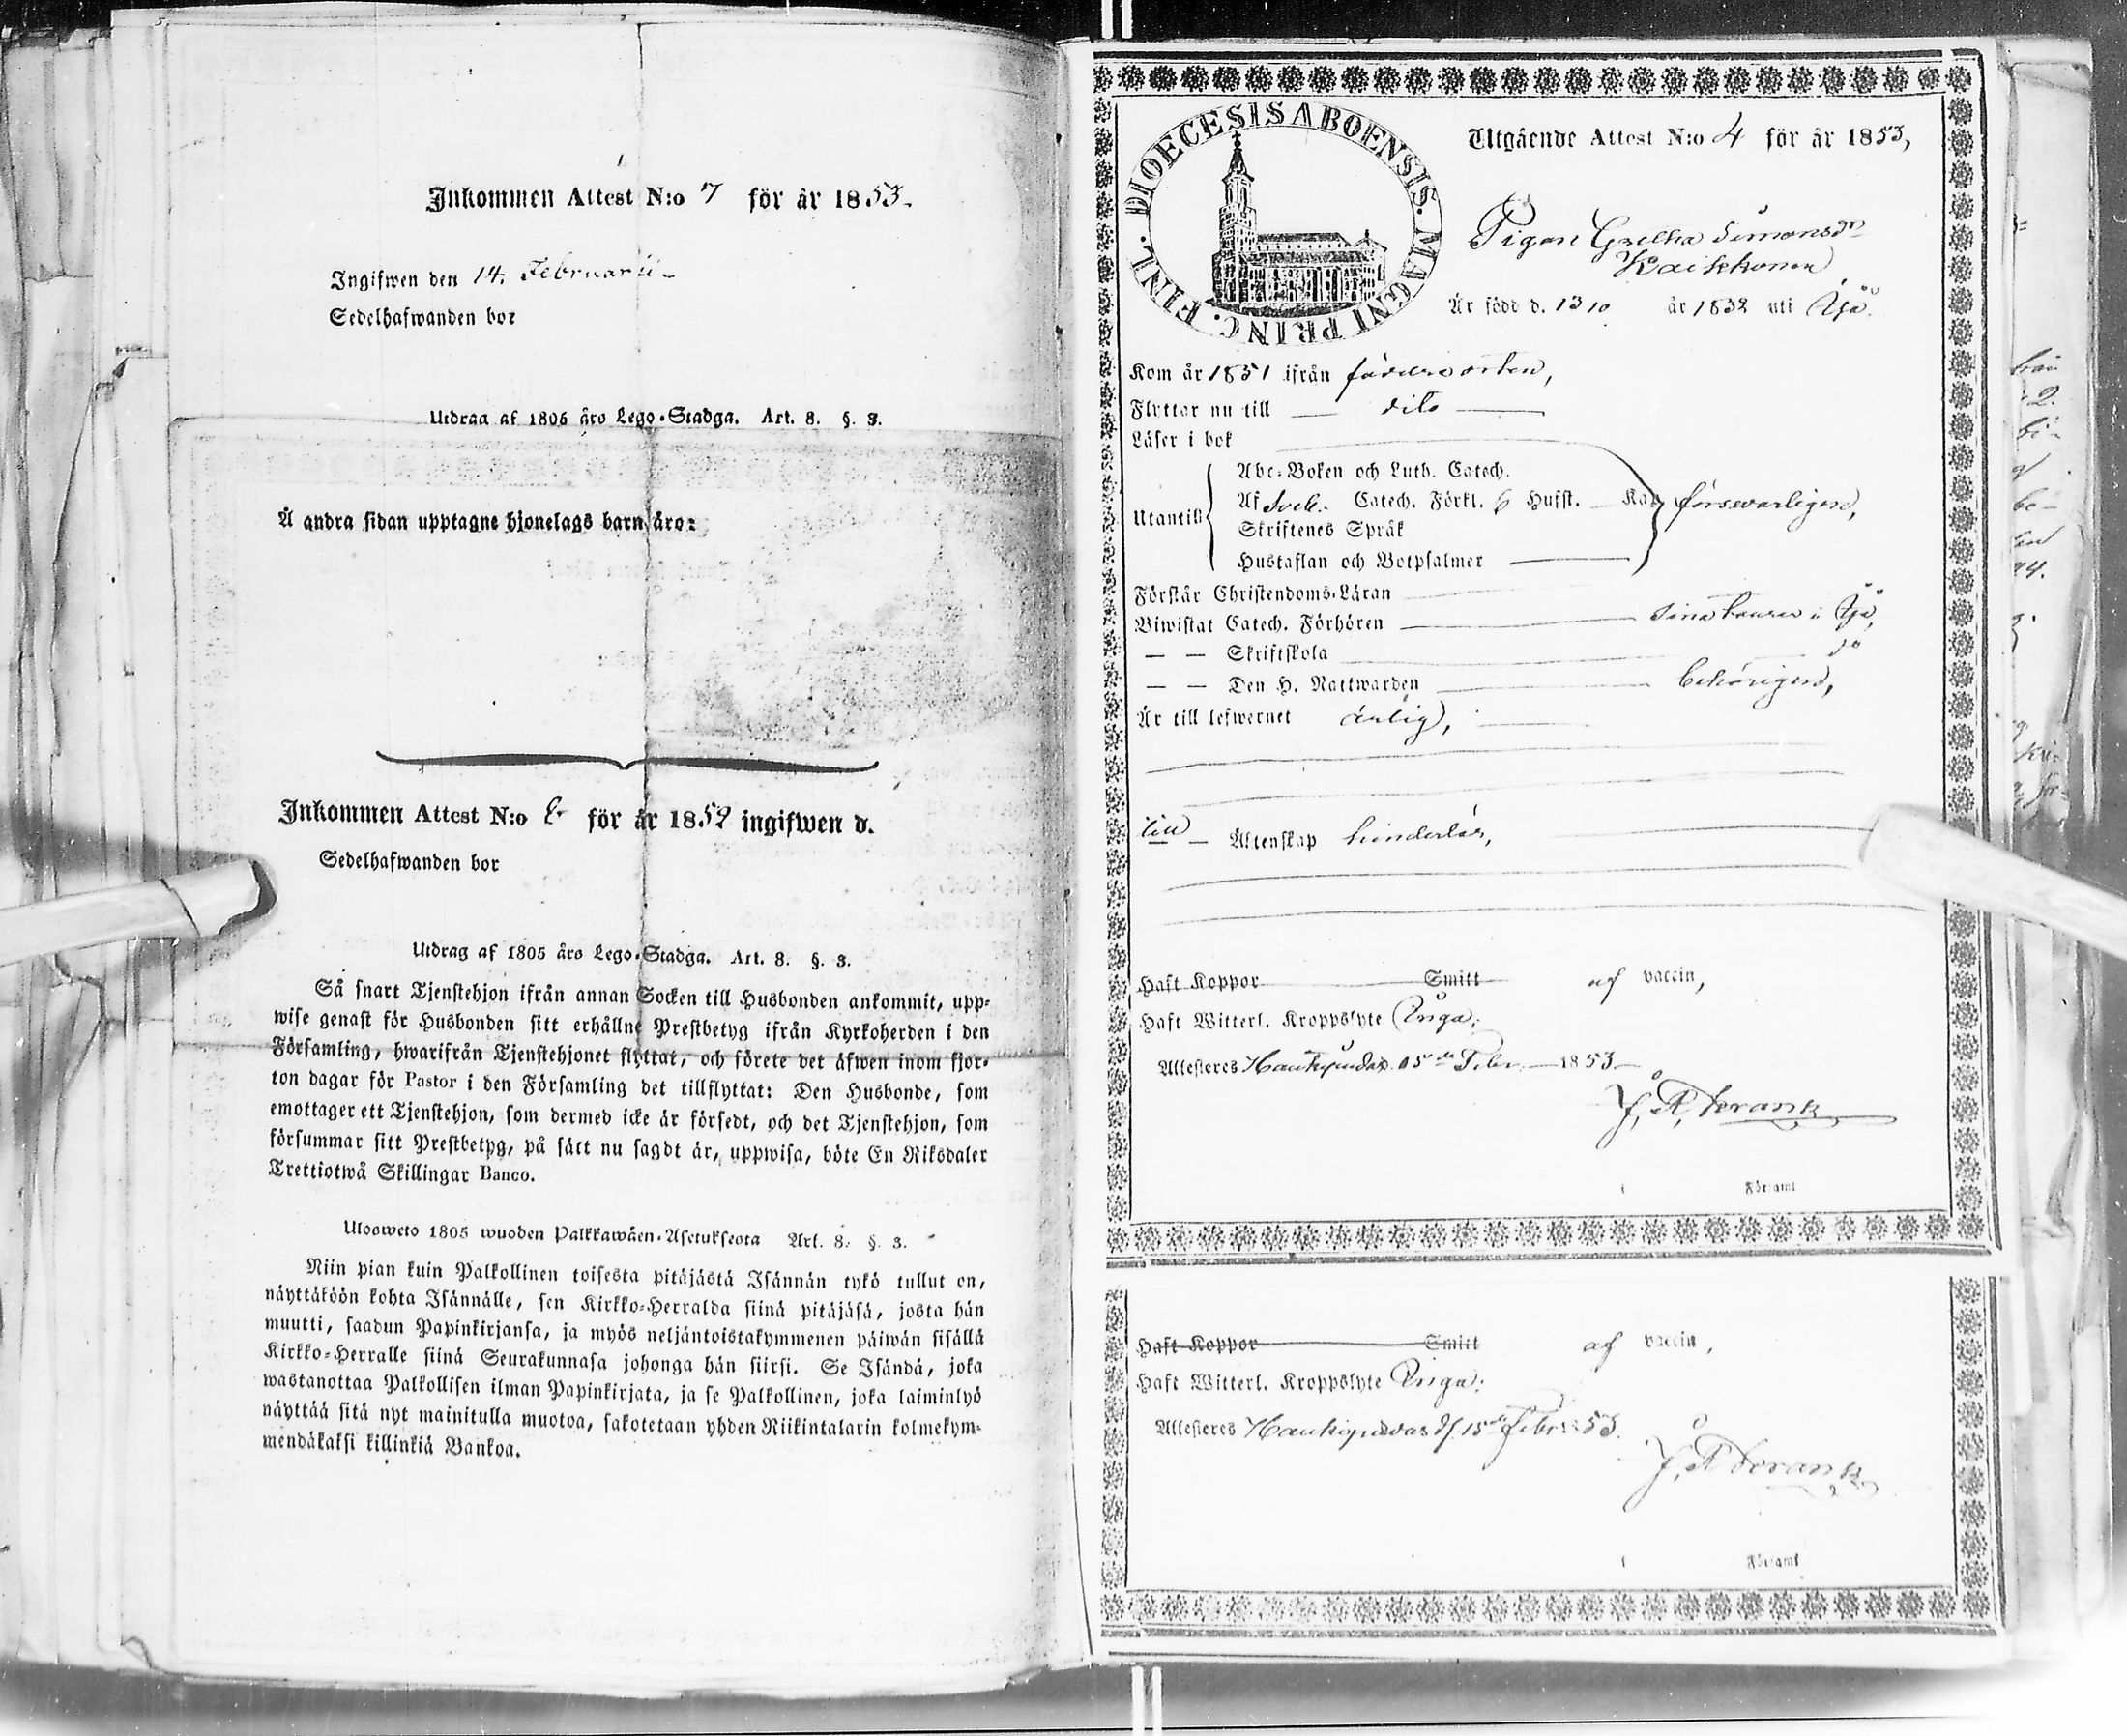 Inkommen Attest N:o 7 för år 1853.
Ingifwen den 14. Februarii
Sedelhafwanden bor
Utdrag af 1805 års Lego-Stadga. Art. 8. §. 3.
Å andra sidan upptagne hjonelags barn äro:
Inkommen Attest N:o för år 1852 ingifwen d.
Sedelhafwanden bor
Utdrag af 1805 års Lego-Stadga. Art. 8. §. 3.
Så snart Tjenstehjon ifrån annan Socken till Husbonden ankommit, upp-
wise genast för Husbonden sitt erhållne Prestbetyg ifrån Kyrkoherden i den
Församling, hwarifrån Tjenstehjonet flyttat, och förete det äfwen inom fjor-
ton dagar för Pastor i den Församling det tillflyttat: Den Husbonde, som
emottager ett Tjenstehjon, som dermed icke är försedt, och det Tjenstehjon, som
försummar sitt Prestbetyg, på sätt nu sagdt är, uppwisa, böte En Riksdaler
Trettiotwå Skillingar Banco.
Ulosweto 1805 wuoden Palkkawäen-Asetuksesta Art. 8. §. 3.
Niin pian kuin Palkollinen toisesta pitäjästä Isännän tykö tullut on,
näyttäköön kohta Isännälle, sen Kirkko-Herralda siinä pitäjäsä, josta hän
muutti, saadun Papinkirjansa, ja myös neljäntoistakymmenen päiwän sisällä
Kirkko-Herralle siinä Seurakunnasa johonga hän siirsi. Se Isändä, joka
wastanottaa Palkollisen ilman Papinkirjata, ja se Palkollinen, joka laiminlyö
näyttää sitä nyt mainitulla muotoa, sakotetaan yhden Riikintalarin kolmekym-
mendäkaksi killinkiä Bankoa.
DIOECESIS ABOENSIS. MAGNI PRINC. FINL.
Utgående Attest N:o 4 för år 1853,
Pigan Gretha Simonsdr
Är född d. 13 10 år 1832 uti
Kom år 1851 ifrån födelseorten,
Flyttar nu till dito
Läser i bok
Utantill
Abc-Boken och Luth. Catech.
Af Sveb. Catech. Förkl. 6 Hufst. Kap
Skriftenes Språk
Hustaflan och Botpsalmer
försvarligen,
Förstår Christendoms-Läran
Biwistat Catech. Förhören
— — Skriftskola do
— — Den H. Nattwarden behörigen,
Är till lefwernet ärlig,
till — Äktenskap hinderlös,
Haft Koppor Smitt af vaccin,
Haft Witterl. Kroppslyte Inga;
Attesteres Honkajoki 15de Febr. 1853
Församl
Haft Koppor Smitt af vaccin,
Haft Witterl. Kroppslyte Inga;
Attesteres
Församl